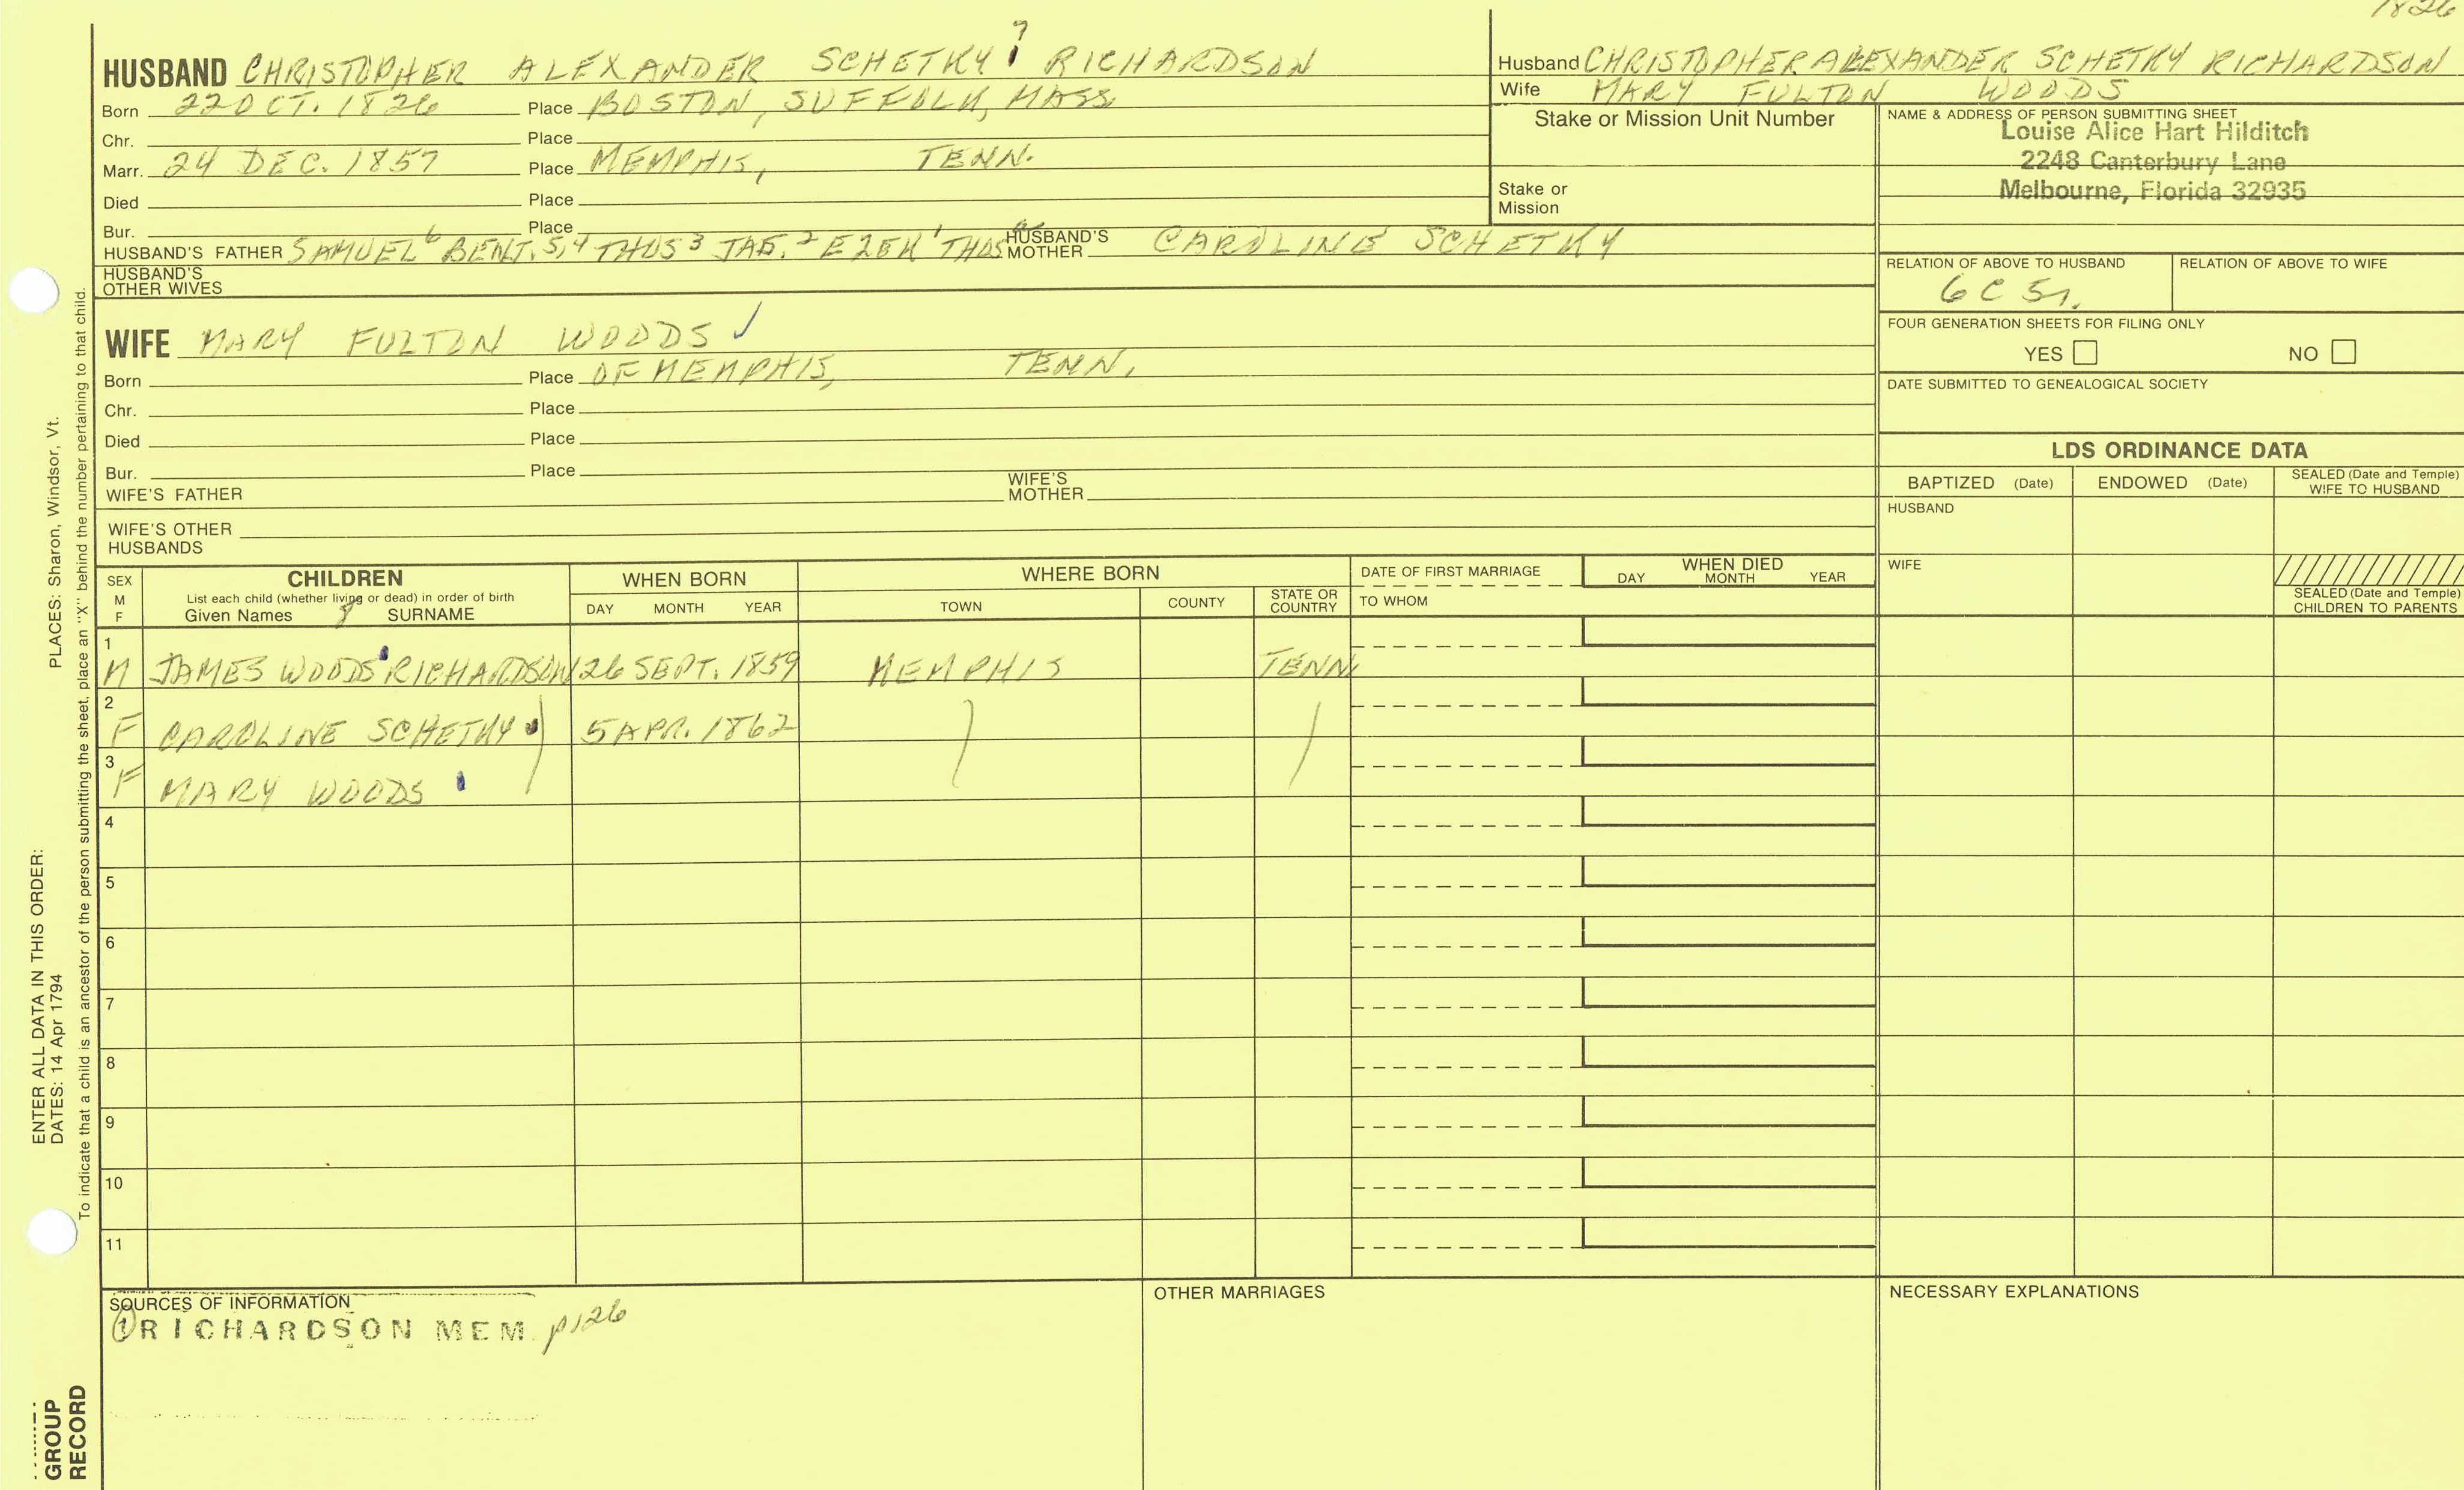 1826
HUSBAND CHRISTOPHER ALEXANDER SCHETKY 7 RICHARDSON
Born 22 OCT. 1826 Place BOSTON, SUFFOLK, MASS
Chr. Place
Marr. 24 DEC. 1857 Place MEMPHIS, TENN.
Died Place
Bur. Place
HUSBAND'S FATHER SAMUEL 6 BENT. 5,4 THOS 3 JAS. 2 EZEK 1 THOS HUSBAND'S MOTHER CAROLINE SCHETKY
HUSBAND'S OTHER WIVES
WIFE MARY FULTON WOODS ✓
Born Place OF MEMPHIS, TENN.
Chr. Place
Died Place
Bur. Place
WIFE'S FATHER WIFE'S MOTHER
WIFE'S OTHER HUSBANDS
Husband CHRISTOPHER ALEXANDER SCHETKY RICHARDSON
Wife MARY FULTON WOODS
Stake or Mission Unit Number
Stake or Mission
NAME & ADDRESS OF PERSON SUBMITTING SHEET
Louise Alice Hart Hilditch
2248 Canterbury Lane
Melbourne, Florida 32935
RELATION OF ABOVE TO HUSBAND RELATION OF ABOVE TO WIFE
6 C 5r.
FOUR GENERATION SHEETS FOR FILING ONLY
YES NO
DATE SUBMITTED TO GENEALOGICAL SOCIETY
LDS ORDINANCE DATA
BAPTIZED (Date) ENDOWED (Date) SEALED (Date and Temple) WIFE TO HUSBAND
HUSBAND
WIFE
SEALED (Date and Temple) CHILDREN TO PARENTS
SEX M F
CHILDREN
List each child (whether living or dead) in order of birth
Given Names 8 SURNAME
WHEN BORN
DAY MONTH YEAR
WHERE BORN
TOWN COUNTY STATE OR COUNTRY
DATE OF FIRST MARRIAGE
TO WHOM
WHEN DIED
DAY MONTH YEAR
1 M JAMES WOODS RICHARDSON 26 SEPT. 1859 MEMPHIS TENN.
2 F CAROLINE SCHETKY 5 APR. 1862
3 F MARY WOODS
4
5
6
7
8
9
10
11
SOURCES OF INFORMATION
① RICHARDSON MEM. p126
OTHER MARRIAGES
NECESSARY EXPLANATIONS
ENTER ALL DATA IN THIS ORDER:
DATES: 14 Apr 1794
PLACES: Sharon, Windsor, Vt.
To indicate that a child is an ancestor of the person submitting the sheet, place an "X" behind the number pertaining to that child.
GROUP
RECORD